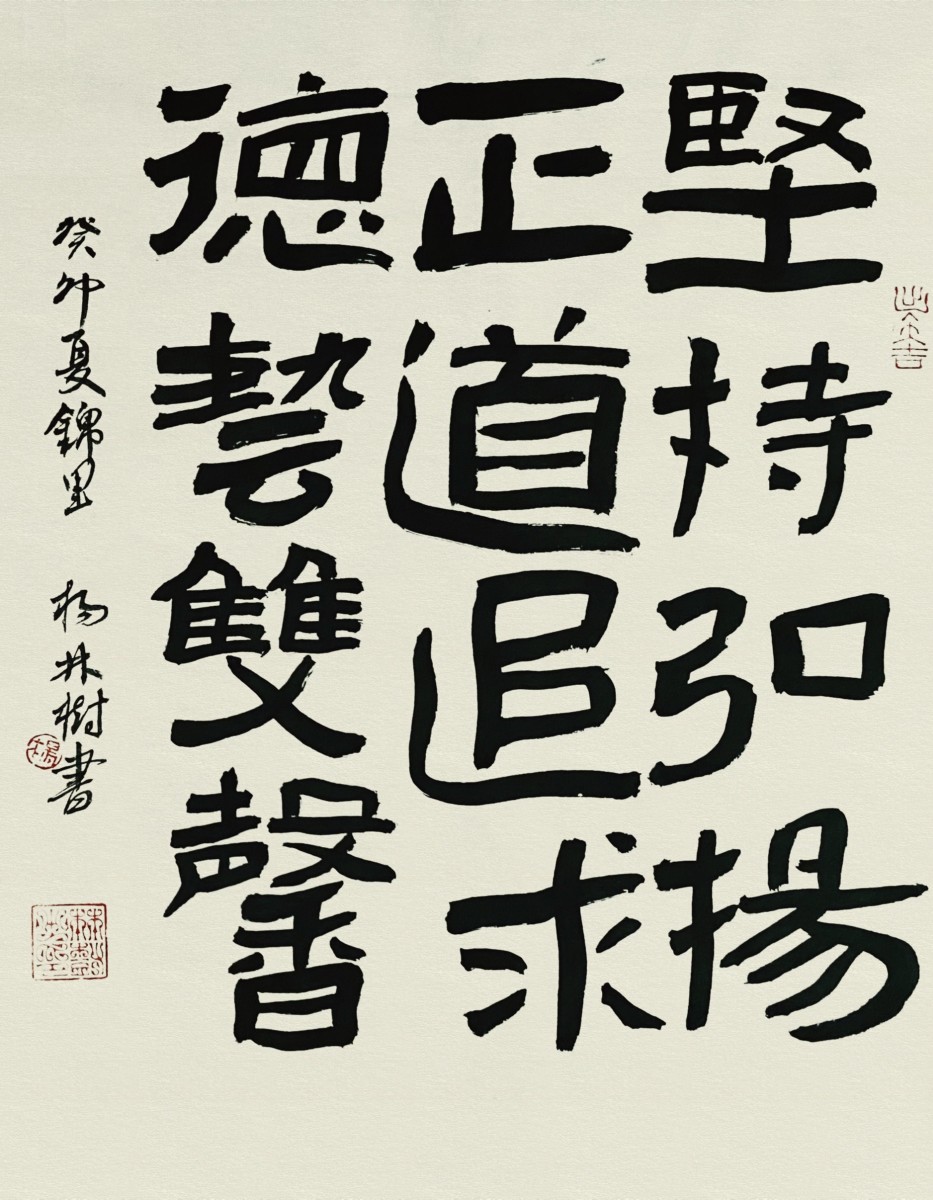 堅持弘揚
正道追求
德藝雙馨
癸卯夏錦里 楊林樹書